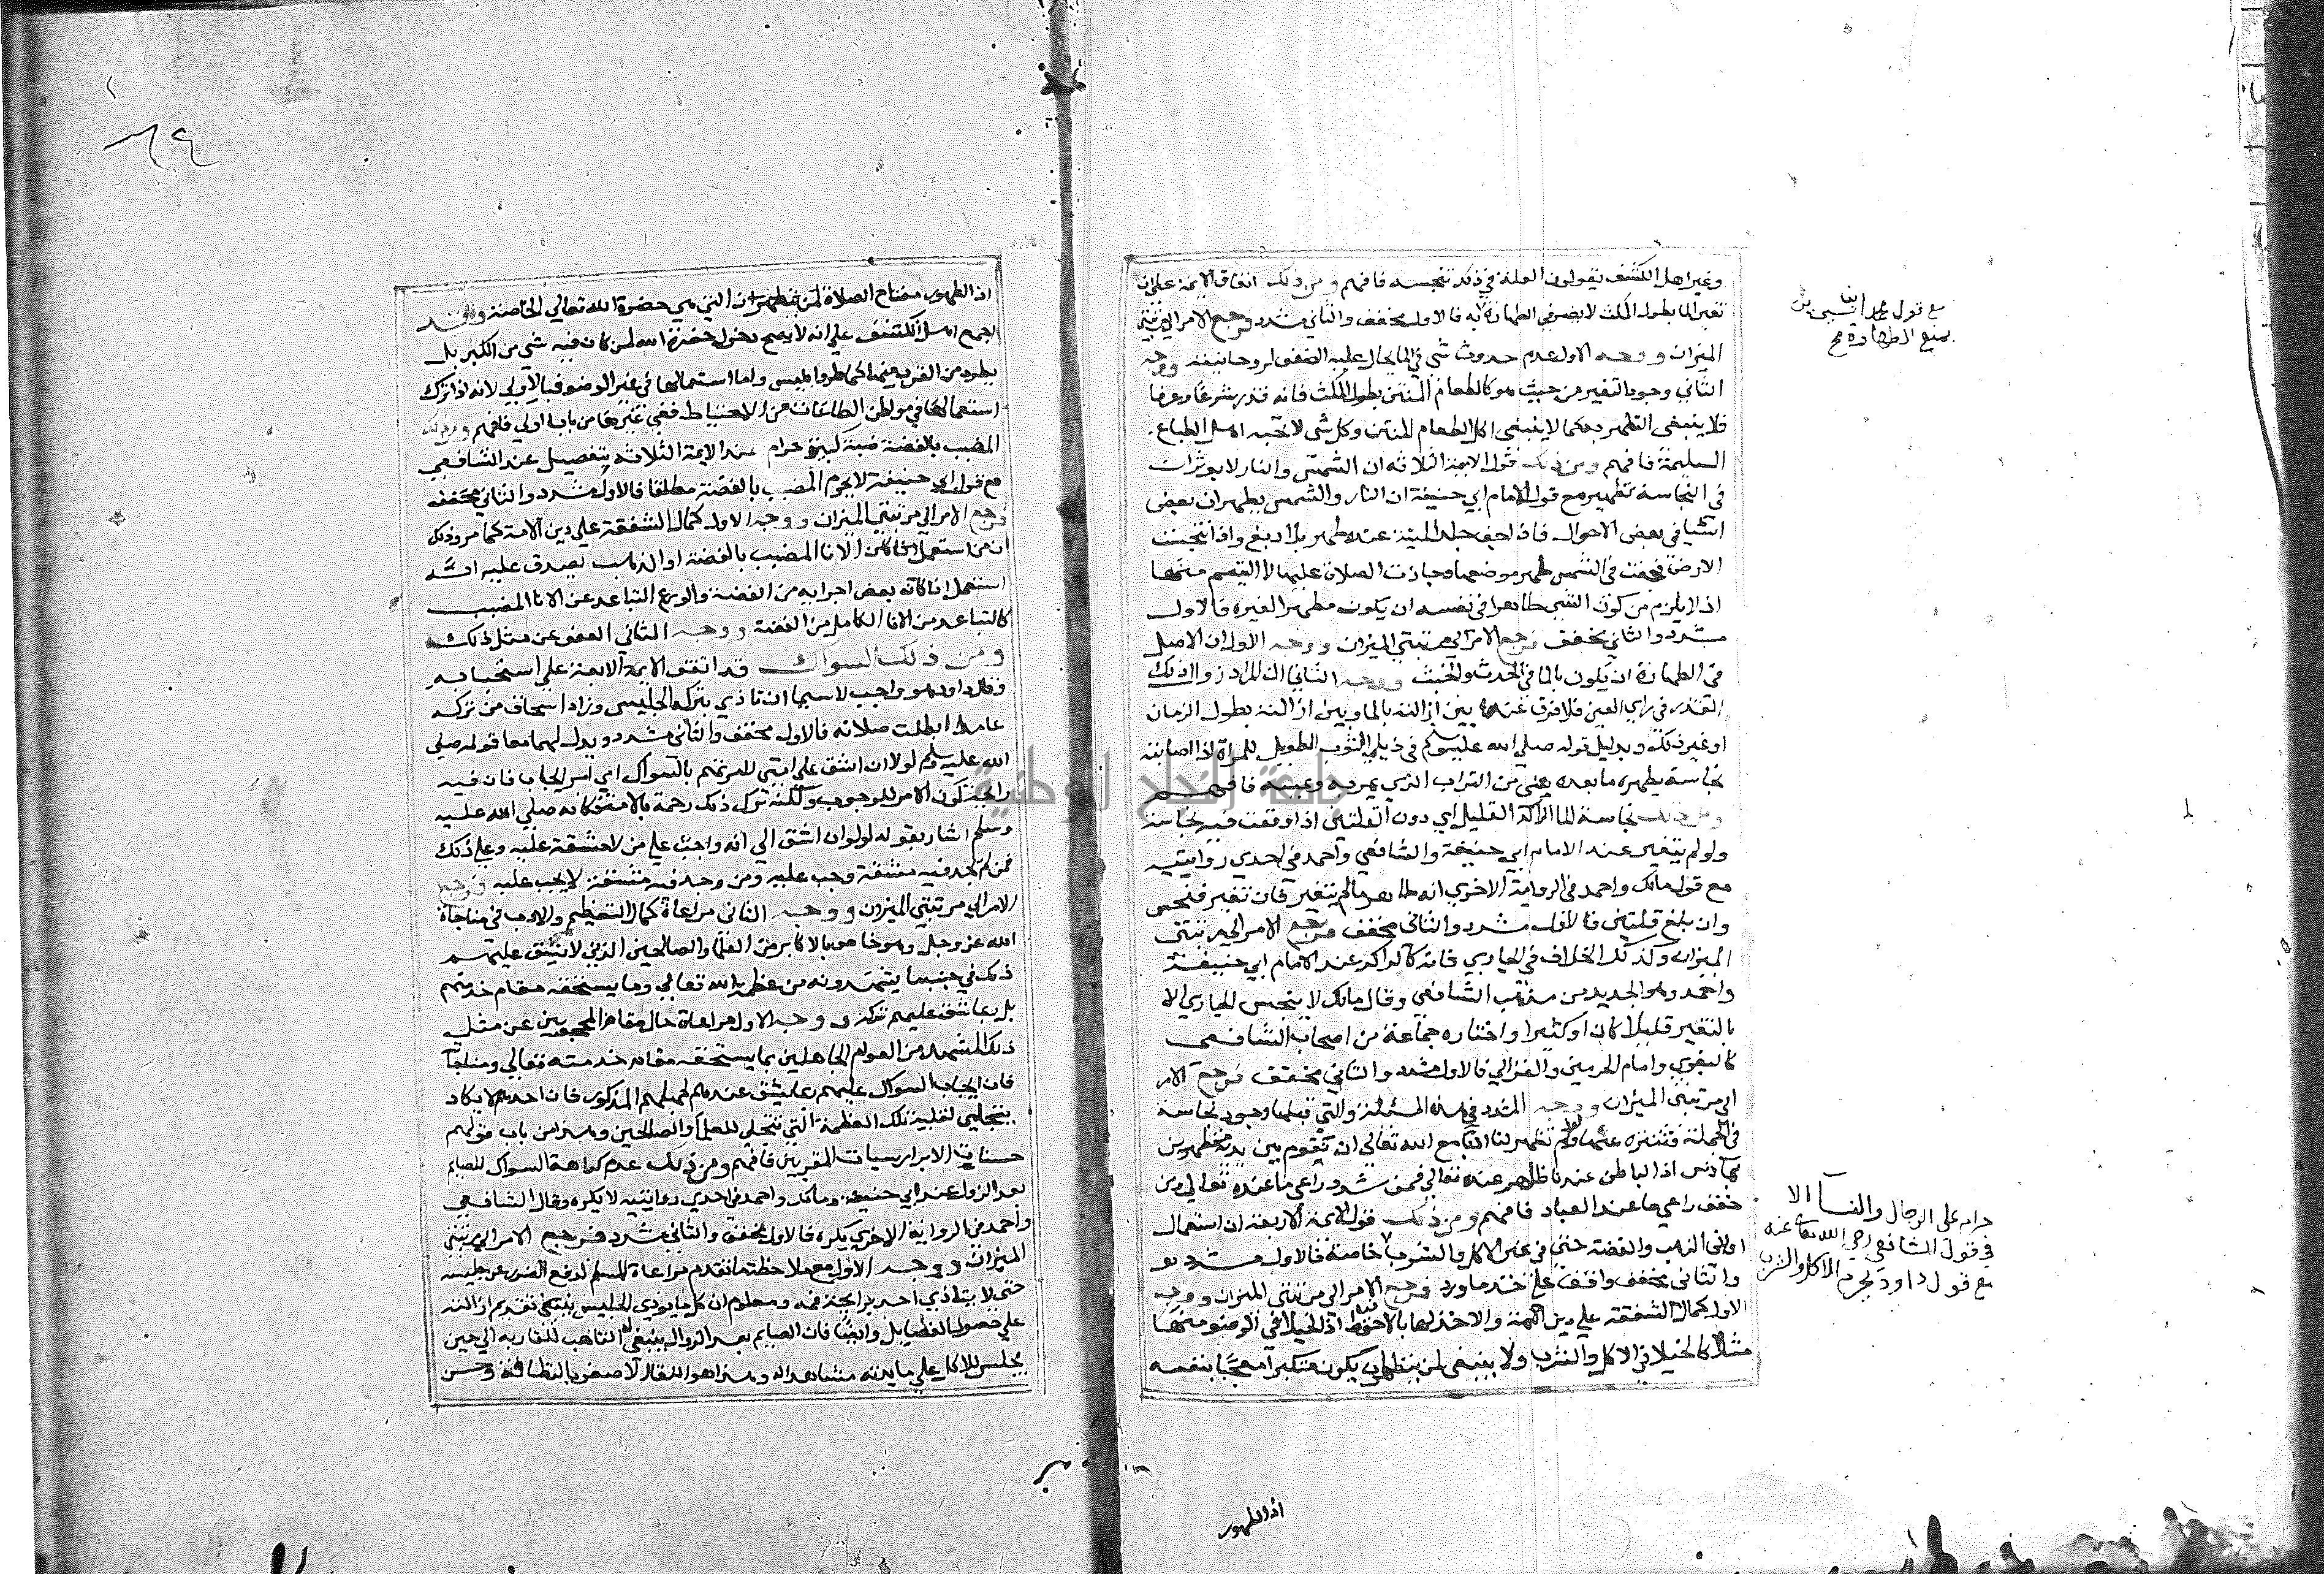 وغير اهل الكشف يقولون العلة في ذلك تنجسه فافهم ومن ذلك اتفاق الايمة على ان
تغير الما بطول المكث لا يضر في الطهارة به فالاول مخفف والثاني مشدد فرجع الامر الي مرتبتي
الميزان ووجه الاول عدم حدوث شي في الما يحال عليه الضعف لروحانيته ووجه
الثاني وجود التغير من حيث هو كالطعام المنتن بطول المكث فانه قذر شرعا وعرفا
فلا ينبغي التطهر به كما لا ينبغي اكل الطعام المنتن وكل شي لا تحبه اهل الطباع
السليمة فافهم ومن ذلك قول الايمة الثلاثة ان الشمس والنار لا يوثران
في النجاسة تطهيرا مع قول الامام ابي حنيفة ان النار والشمس يطهران بعض
اشيا في بعض الاحوال فاذا جف جلد الميتة عنده طهر بلا دبغ واذا تنجست
الارض فجفت في الشمس طهر موضعها وجازت الصلاة عليها لا التيمم منها
اذ لا يلزم من كون الشي طاهرا في نفسه ان يكون مطهرا لغيره فالاول
مشدد والثاني مخفف فرجع الامر الي مرتبتي الميزان ووجه الاول ان الاصل
في الطهارة ان يكون بالما في الحدث والخبث ووجه الثاني ان المراد زوال ذلك
القذر في راي العين فلا فرق عنده بين ازالته بالما وبين ازالته بطول الزمان
او غير ذلك وبدليل قوله صلي الله عليه وسلم في ذيل الثوب الطويل للمراة اذا اصابته
نجاسة يطهره ما بعده يعني من التراب الذي يمر به وعينه فافهم
ومن ذلك نجاسة الما الراكد القليل اي دون القلتين اذا وقعت فيه نجاسة
ولو لم يتغير عند الامام ابي حنيفة والشافعي واحمد في احدي روايتيه
مع قول مالك واحمد في الرواية الاخري انه طاهر ما لم يتغير فان تغير فنجس
وان بلغ قلتين فالاول مشدد والثاني مخفف فرجع الامر الي مرتبتي
الميزان وكذلك الخلاف في الجاري فانه كالراكد عند الامام ابي حنيفة
واحمد وهو الجديد من مذهب الشافعي وقال مالك لا ينجس الجاري الا
بالتغير قليلا كان او كثيرا واختاره جماعة من اصحاب الشافعي
كالبغوي وامام الحرمين والغزالي فالاول مشدد والثاني مخفف فرجع الامر
الي مرتبتي الميزان ووجه المشدد في هذه المسئلة والتي قبلها وجود نجاسة
في الجملة فتتنزه عنها ولم تظهر لنا ادبا مع الله تعالي ان نقوم بين يديه متطهرين
بما دنس اذ الباطن عندنا ظاهر عنده تعالي فمن شدد راعي ما عنده تعالي ومن
خفف راعي ما عند العباد فافهم ومن ذلك قول الايمة الاربعة ان استعمال
اواني الذهب والفضة حتي في غير الاكل والشرب خاصة فالاول مشدد
والثاني مخفف واقف على حد ما ورد فرجع الامر الي مرتبتي الميزان ووجه
الاول كمال الشفقة علي دين الامة والاخذ لها بالاحوط اذ الخيلا في الوضو منها
مثلا كالخيلا في الاكل والشرب ولا ينبغي لمن يتطهر ان يكون متكبرا معجبا بنفسه
مع قول محمد ابن سيرين
بمنع الطهارة به صح
حرام على الرجال والنسآ الا
في قول الشافعي رضي الله تعالى عنه
مع قول داود يحرم الاكل والشرب
اذ الطهور
٦٤
اذ الطهور مفتاح الصلاة لمن يتطهر ان التي هي حضرة الله تعالي الخاصة وقد
اجمع اهل الكشف علي انه لا يصح دخول حضرة الله لمن كان فيه شي من الكبر بل
يطرد من القرب منها كما طرد ابليس واما استعمالها في غير الوضو فبالاولي لانه اذا ترك
استعمالها في مواطن الطاعات من الاحتياط ففي غيرها من باب اولي فافهم ومن ذلك
المضبب بالفضة ضبة كبيرة حرام عند الايمة الثلاثة بتفصيل عند الشافعي
مع قول ابي حنيفة لا يحرم المضبب بالفضة مطلقا فالاول مشدد والثاني مخفف
فرجع الامر الي مرتبتي الميزان ووجه الاول كمال الشفقة علي دين الامة كما مر وذلك
ان من استعمل الاناء المضبب بالفضة او الذهب يصدق عليه انه
استعمل انا كانه بعض اجزايه من الفضة والورع التباعد عن الانا المضبب
كالتباعد من الانا الكامل من الفضة ووجه الثاني العفو عن مثل ذلك
ومن ذلك السواك قد اتفق الايمة الاربعة علي استحبابه
وقال داود هو واجب لا سيما ان تاذي بتركه الجليس وزاد اسحاق من تركه
عامدا بطلت صلاته فالاول مخفف والثاني مشدد ويدل لهما معا قوله صلي
الله عليه وسلم لولا ان اشق علي امتي لامرتهم بالسواك اي امر ايجاب فان فيه
رايحة كون الامر للوجوب ولكنه ترك ذلك رحمة بالامة فكانه صلي الله عليه
وسلم اشار بقوله لولا ان اشق الي انه واجب علي من لا مشقة عليه وعلي ذلك
فمن لم يجد فيه مشقة وجب عليه ومن وجد فيه مشقة لا يجب عليه فرجع
الامر الي مرتبتي الميزان ووجه الثاني مراعاة كمال التعظيم والادب في مناجاة
الله عز وجل وهو خاص بالاكابر من العلما والصالحين الذين لا يشق عليهم
ذلك في جنب ما يشهدونه من عظمة الله تعالي وما يستحقه مقام خدمتهم
بل ربما شق عليهم تركه ووجه الاول مراعاة حال مقام المحجوبين عن مثل
ذلك المشهد من العوام الجاهلين بما يستحقه مقام خدمته تعالي ومناجاته
فان ايجاب السواك عليهم ربما يشق عندهم لجهلهم المذكور فان احدهم لا يكاد
يتجلي لقلبه تلك العظمة التي تتجلي للعلما والصالحين وهذا من باب قولهم
حسنات الابرار سيات المقربين فافهم ومن ذلك عدم كراهة السواك للصايم
بعد الزوال عند ابي حنيفة ومالك واحمد في احدي روايتيه لا يكره وقال الشافعي
واحمد في الرواية الاخري يكره فالاول مخفف والثاني مشدد فرجع الامر الي مرتبتي
الميزان ووجه الاول مع ملاحظة ما تقدم مراعاة المسلم لدفع الضرر عن جليسه
حتي لا يتاذي احد برايحة فمه ومعلوم ان كل ما يوذي الجليس ينبغي تقديم ازالته
علي حصول الفضايل وايضا فان الصايم بعد الزوال ينبغي له التاهب للقا ربه الي حين
يجلس للاكل علي مايدته مشاهدا له وهذا هو اللقا الاصغر بالنظافة وحسن